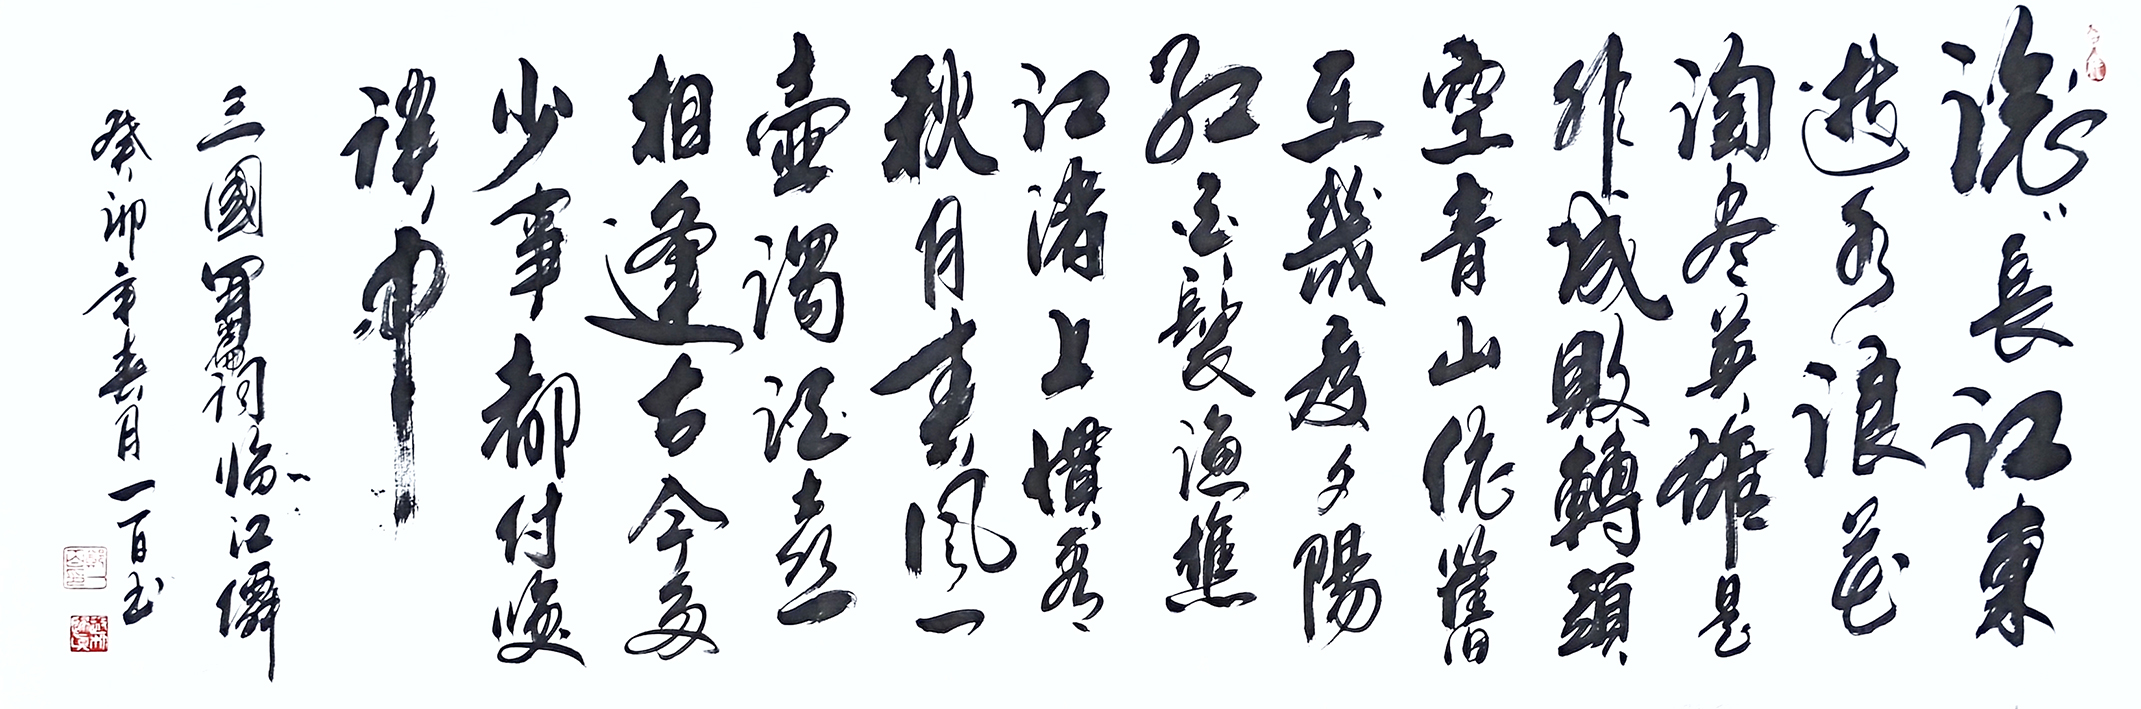 滚〻長江東
逝水浪花
淘尽英雄是
非成敗轉頭
空青山依舊
在幾度夕陽
紅白髮漁樵
江渚上慣看
秋月春風一
壺濁酒喜
相逢古今多
少事都付咲
談中
三國開篇词临江僊
癸卯年春月一百书